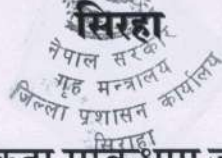 सिरहा
नेपाल सरकार
गृह मन्त्रालय
जिल्ला प्रशासन कार्यालय
सिराहा